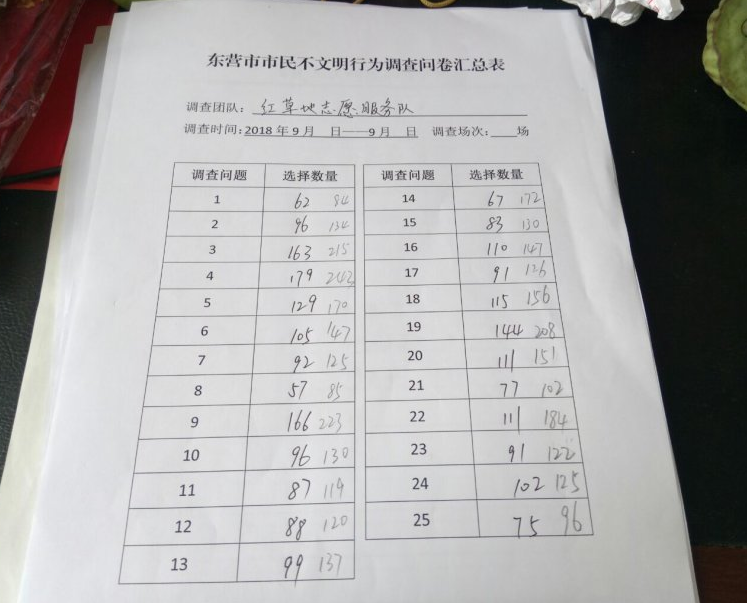 东营市市民不文明行为调查问卷汇总表
调查团队：红草地志愿服务队
调查时间：2018年9月 日——9月 日 调查场次： 场
调查问题 选择数量 调查问题 选择数量
1 62 84 14 67 172
2 96 134 15 83 130
3 163 215 16 110 147
4 179 242 17 91 126
5 129 170 18 115 156
6 105 147 19 144 208
7 92 125 20 111 151
8 57 85 21 77 102
9 166 223 22 111 184
10 96 130 23 91 122
11 87 119 24 102 125
12 88 120 25 75 96
13 99 137